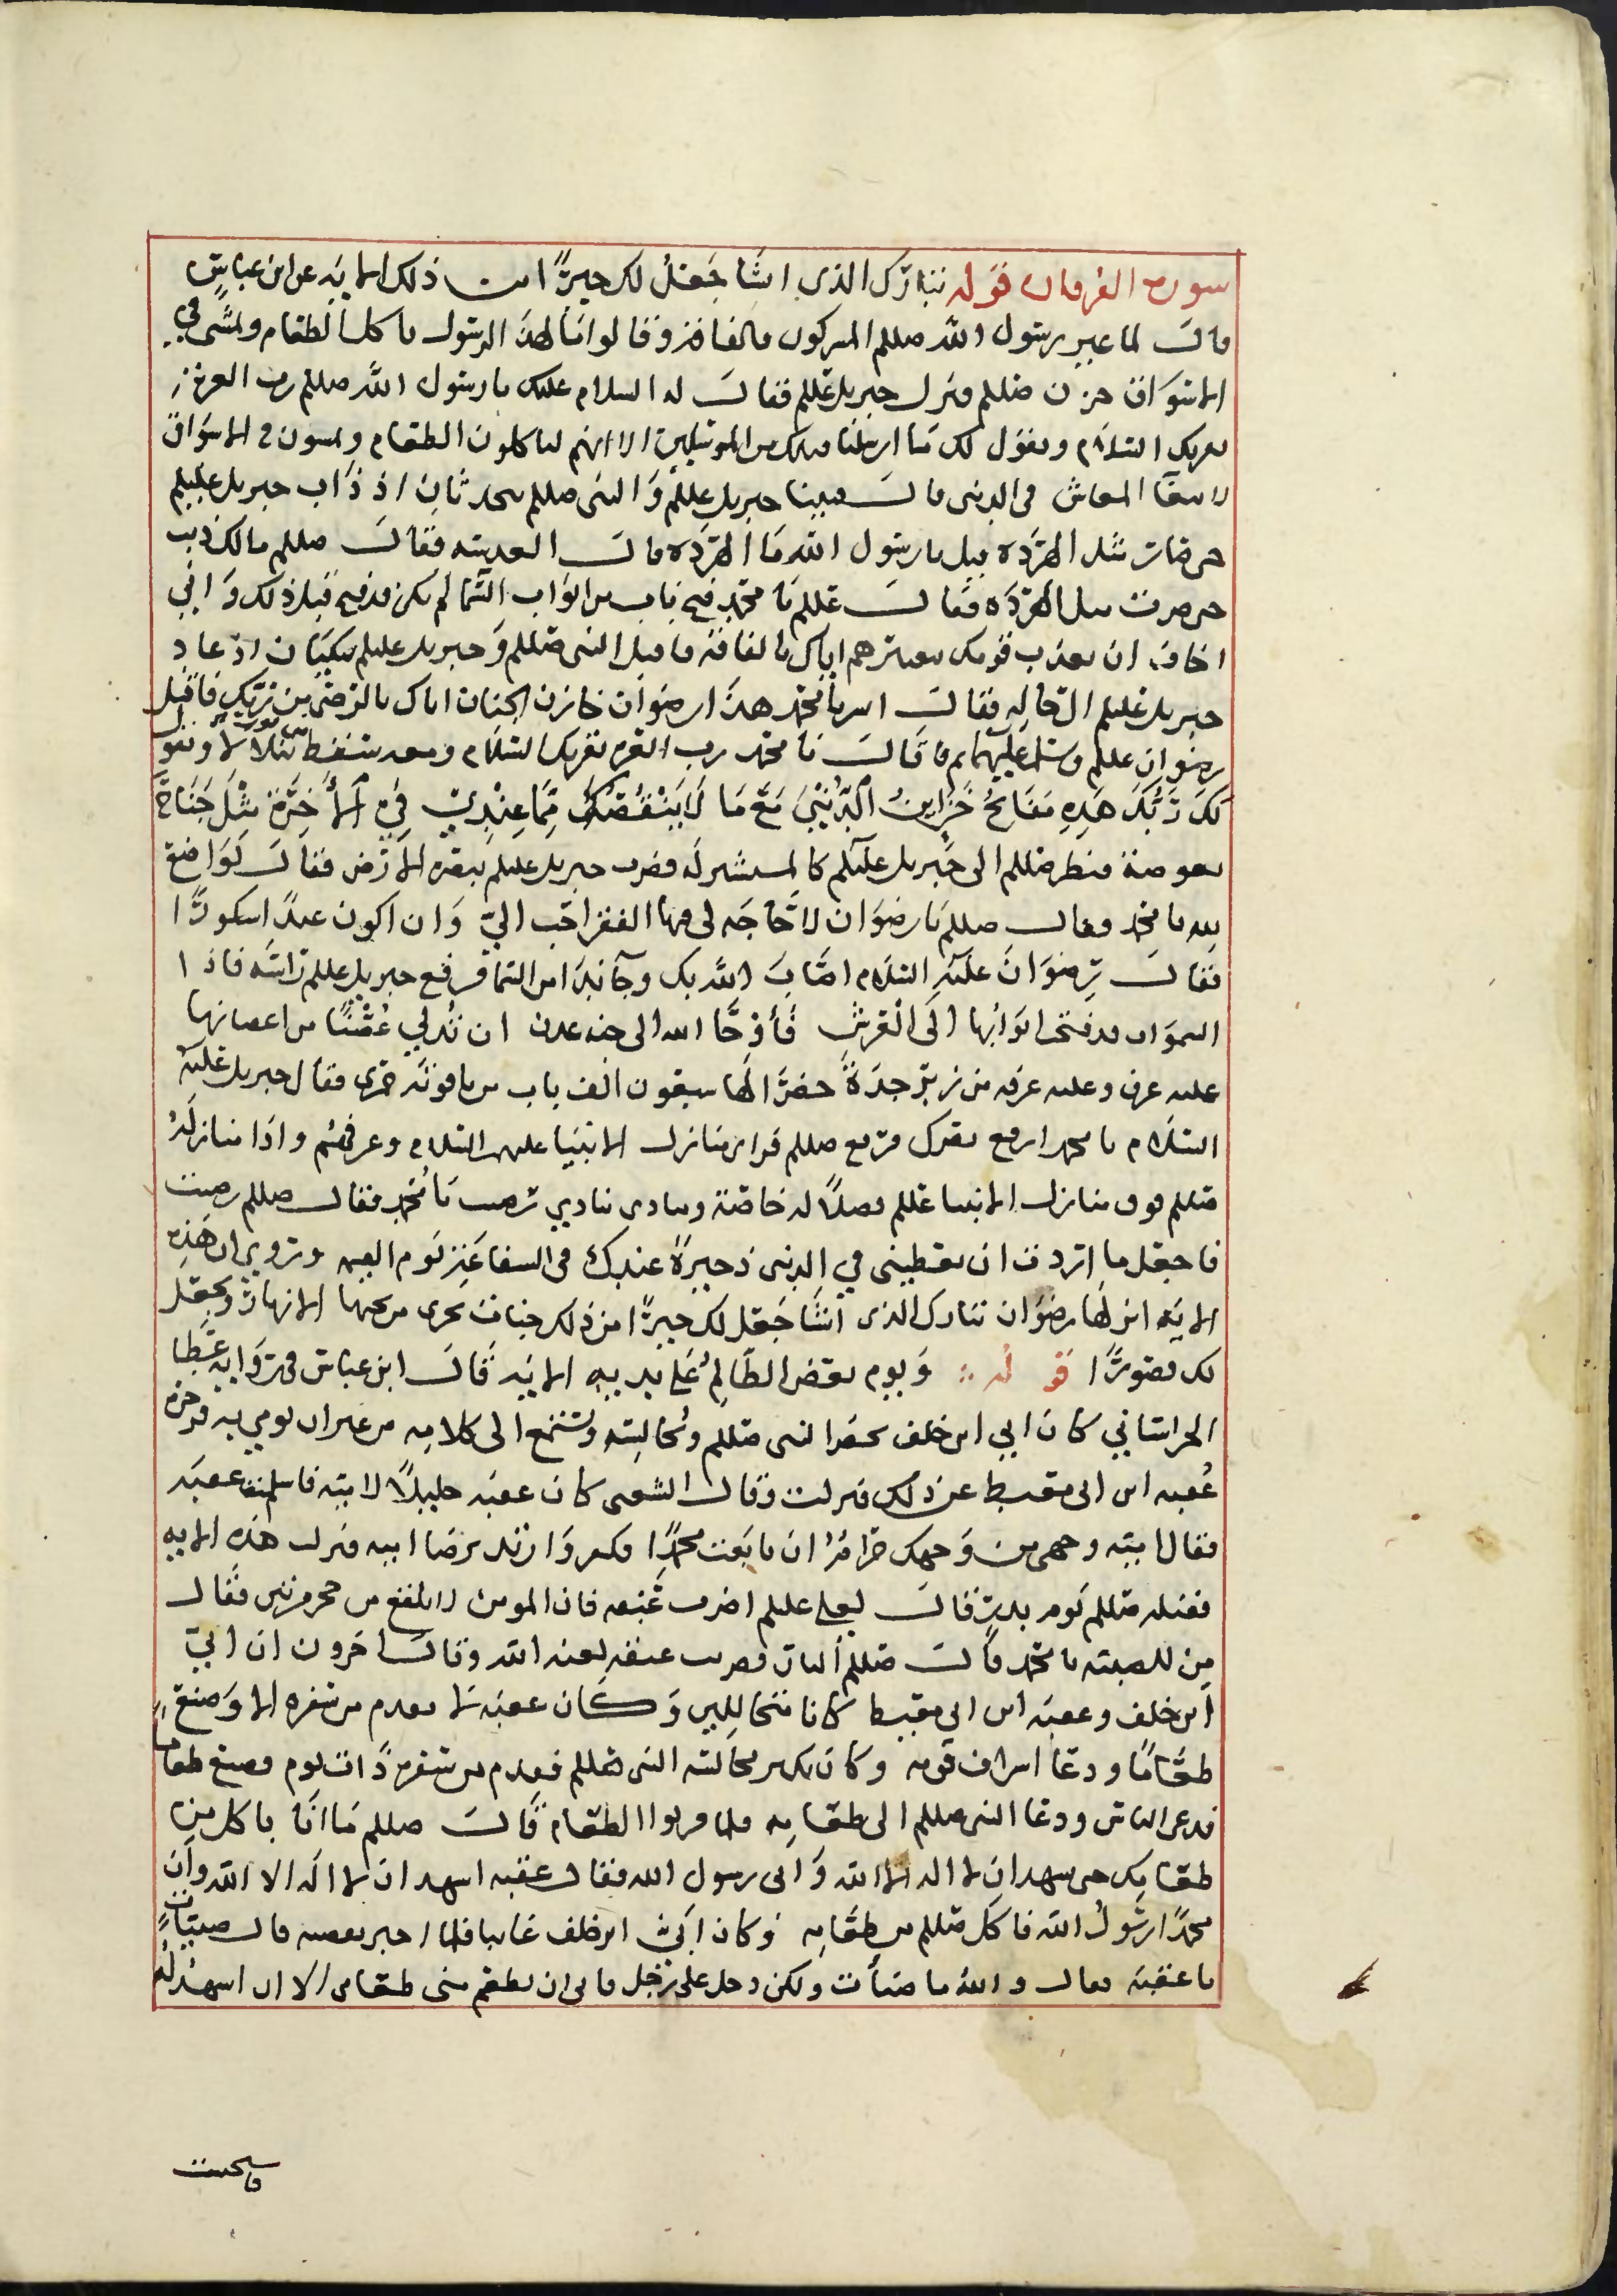 سورة الفرقان قوله تبارك الذى انشا جعل لك خيرًا من ذلك الايه عن ابن عباس
قال لما عير رسول الله صللم المشركون بالفاقه وقالوا ما لهذا الرسول ياكل الطعام ويمشى في
الاسواق حزن صللم فنزل جبريل عللم فقال له السلام عليك يا رسول الله صللم رب العزه
يقريك السلام ويقول لك ما ارسلنا قبلك من المرسلين الا انهم لياكلون الطعام ويمشون في الاسواق
لابتغا المعاش فى الدنى قال فبينا جبريل عللم والنبى صللم يتحدثان اذ ذاب جبريل عليلم
حتى صار مثل الهرده قيل يا رسول الله ما الهرده قال العدسه فقال صللم مالك ذبت
حتى صرت مثل الهرده فقال عللم يا محمد فتح باب من ابواب السما لم يكن فتح قبل ذلك واني
اخاف ان يعذب قومك بعيرهم اياك بالفاقه فاقبل النبى صللم وجبريل عليلم يبكيان اذ عاد
جبريل عليلم الى حاله فقال ابشر يا محمد هذا رضوان خازن الجنان اتاك بالرضى من ربك فاقبل
رضوان عللم وسلم عليهما ثم قال يا محمد رب العزه يقريك السلام ومعه سفط من نور يتلالا ويقول
لك ربك هذه مفاتح خزاين الدنيى مع ما لا ينقصك مما عندي في الاخرة مثل جناح
بعوضة فنظر صللم الى جبريل عليلم كالمستشير له فضرب جبريل عليلم بيده الارض فقال تواضع
لله يا محمد فقال صللم يا رضوان لا حاجه لى فيها الفقر احب الي وان اكون عبدًا شكورًا
فقال رضوان عليه السلام اصاب الله بك وجا ندا من السما فرفع جبريل عللم راسه فاذا
السموات قد فتحت ابوابها الى العرش فاوحا الله الى جنه عدن ان تدلي غصنًا من اغصانها
عليه عرف وعليه غرفه من زبرجدة خضرا لها سبعون الف باب من ياقوته حمرى فقال جبريل عليه
السلام يا محمد ارفع بصرك فرفع صللم فراى منازل الانبيا عليهم السلام وعرفهم واذا منازله
صللم فوق منازل الانبيا عللم فضلًا له خاصة ومنادى ينادي رضيت يا محمد فقال صللم رضيت
فاجعل ما اردت ان تعطينى في الدنى ذخيرة عندك فى الشفاعه يوم القيمه ويروى ان هذه
الايه انزلها رضوان تبارك الذى انشا جعل لك خيرًا من ذلك جنات تجرى من تحتها الانهار ويجعل
لك قصورًا قوله ويوم يعض الظالم على يديه الايه قال ابن عباس فى روايه عطا
الخراساني كان ابي ابن خلف يحضر النبى صللم ويجالسه ويستمع الى كلامه من غير ان يومن به فزجره
عُقبه ابن ابى معيط عن ذلك فنزلت وقال الشعبى كان عقبه خليلًا لابيه فاسلم عقبه
فقال ابيه وجهى من وجهك حراما ان بايعت محمدًا فكفر وارتد برضا ابيه فنزل هذه الايه
فقتله صللم يوم بدر فقال لعلى عليلم اضرب عنقه فان المومن لا يلدغ من جحر مرتين فقال
من للصبيه يا محمد قال صللم النار فضرب عنقه لعنه الله وقال اخرون ان ابي
ابن خلف وعقبه ابن ابى معيط كانا متخاللين وكان عقبه لا يقدم من سفره الا وصنع
طعامًا ودعا اشراف قومه وكان يكثر مجالسه النبى صللم فقدم من سفره ذات يوم فصنع طعامًا
فدعى الناس ودعا النبى صللم الى طعامه فلما قربوا الطعام قال صللم ما انا باكل من
طعامك حتى تشهد ان لا اله الا الله وانى رسول الله فقال عقبه اشهد ان لا اله الا الله وان
محمدًا رسول الله فاكل صللم من طعامه وكان ابي ابن خلف غايبا فلما اخبر بقصته قال صبيات
يا عقبه فقال والله ما صبأت ولكن دخل على رجل فابى ان يطعم منى طعامى الا ان اشهد له
فاستحيت